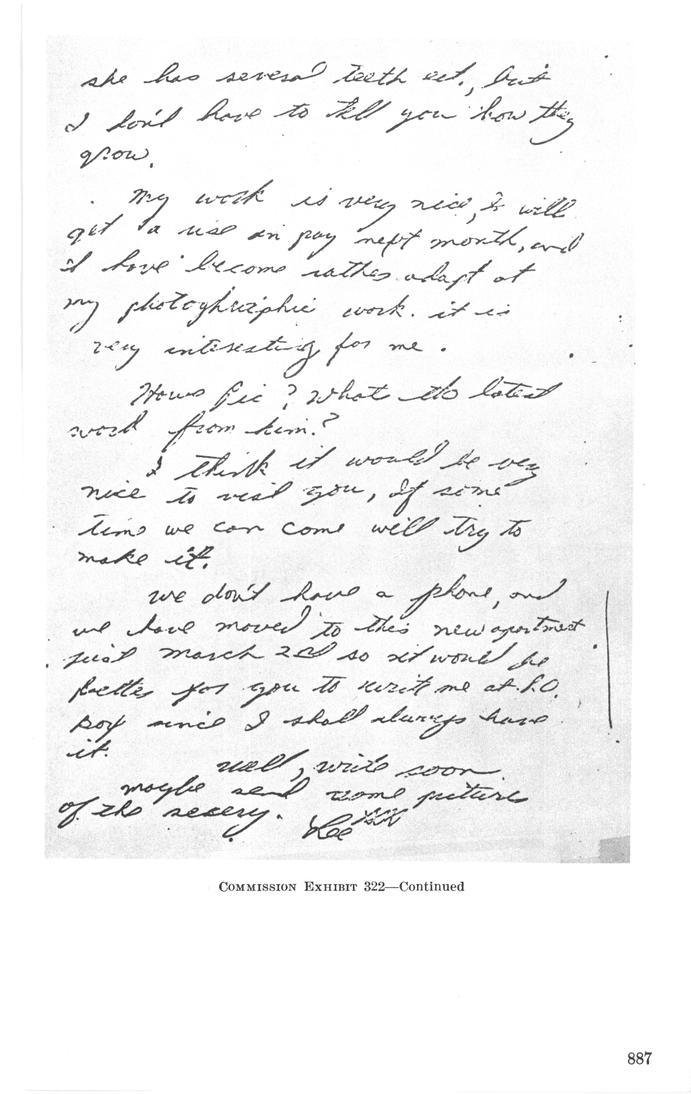 she has several teeth out, but
I don't have to tell you how they
grow.
My work is very nice, I will
get a rise in pay next month, and
I have become rather adapt at
my photoghraphic work. it is
very interesting for me.
Hows Pic? Whats the latest
word from him?
I think it would be very
nice to visit you, If some
time we can come will try to
make it.
we don't have a phone, and
we have moved to this new apartment
just march 2nd so it would be
better for you to write me at P.O.
Box since I shall always have
it.
well, write soon
maybe send some picture
of the
Lee
COMMISSION EXHIBIT 322—Continued
887